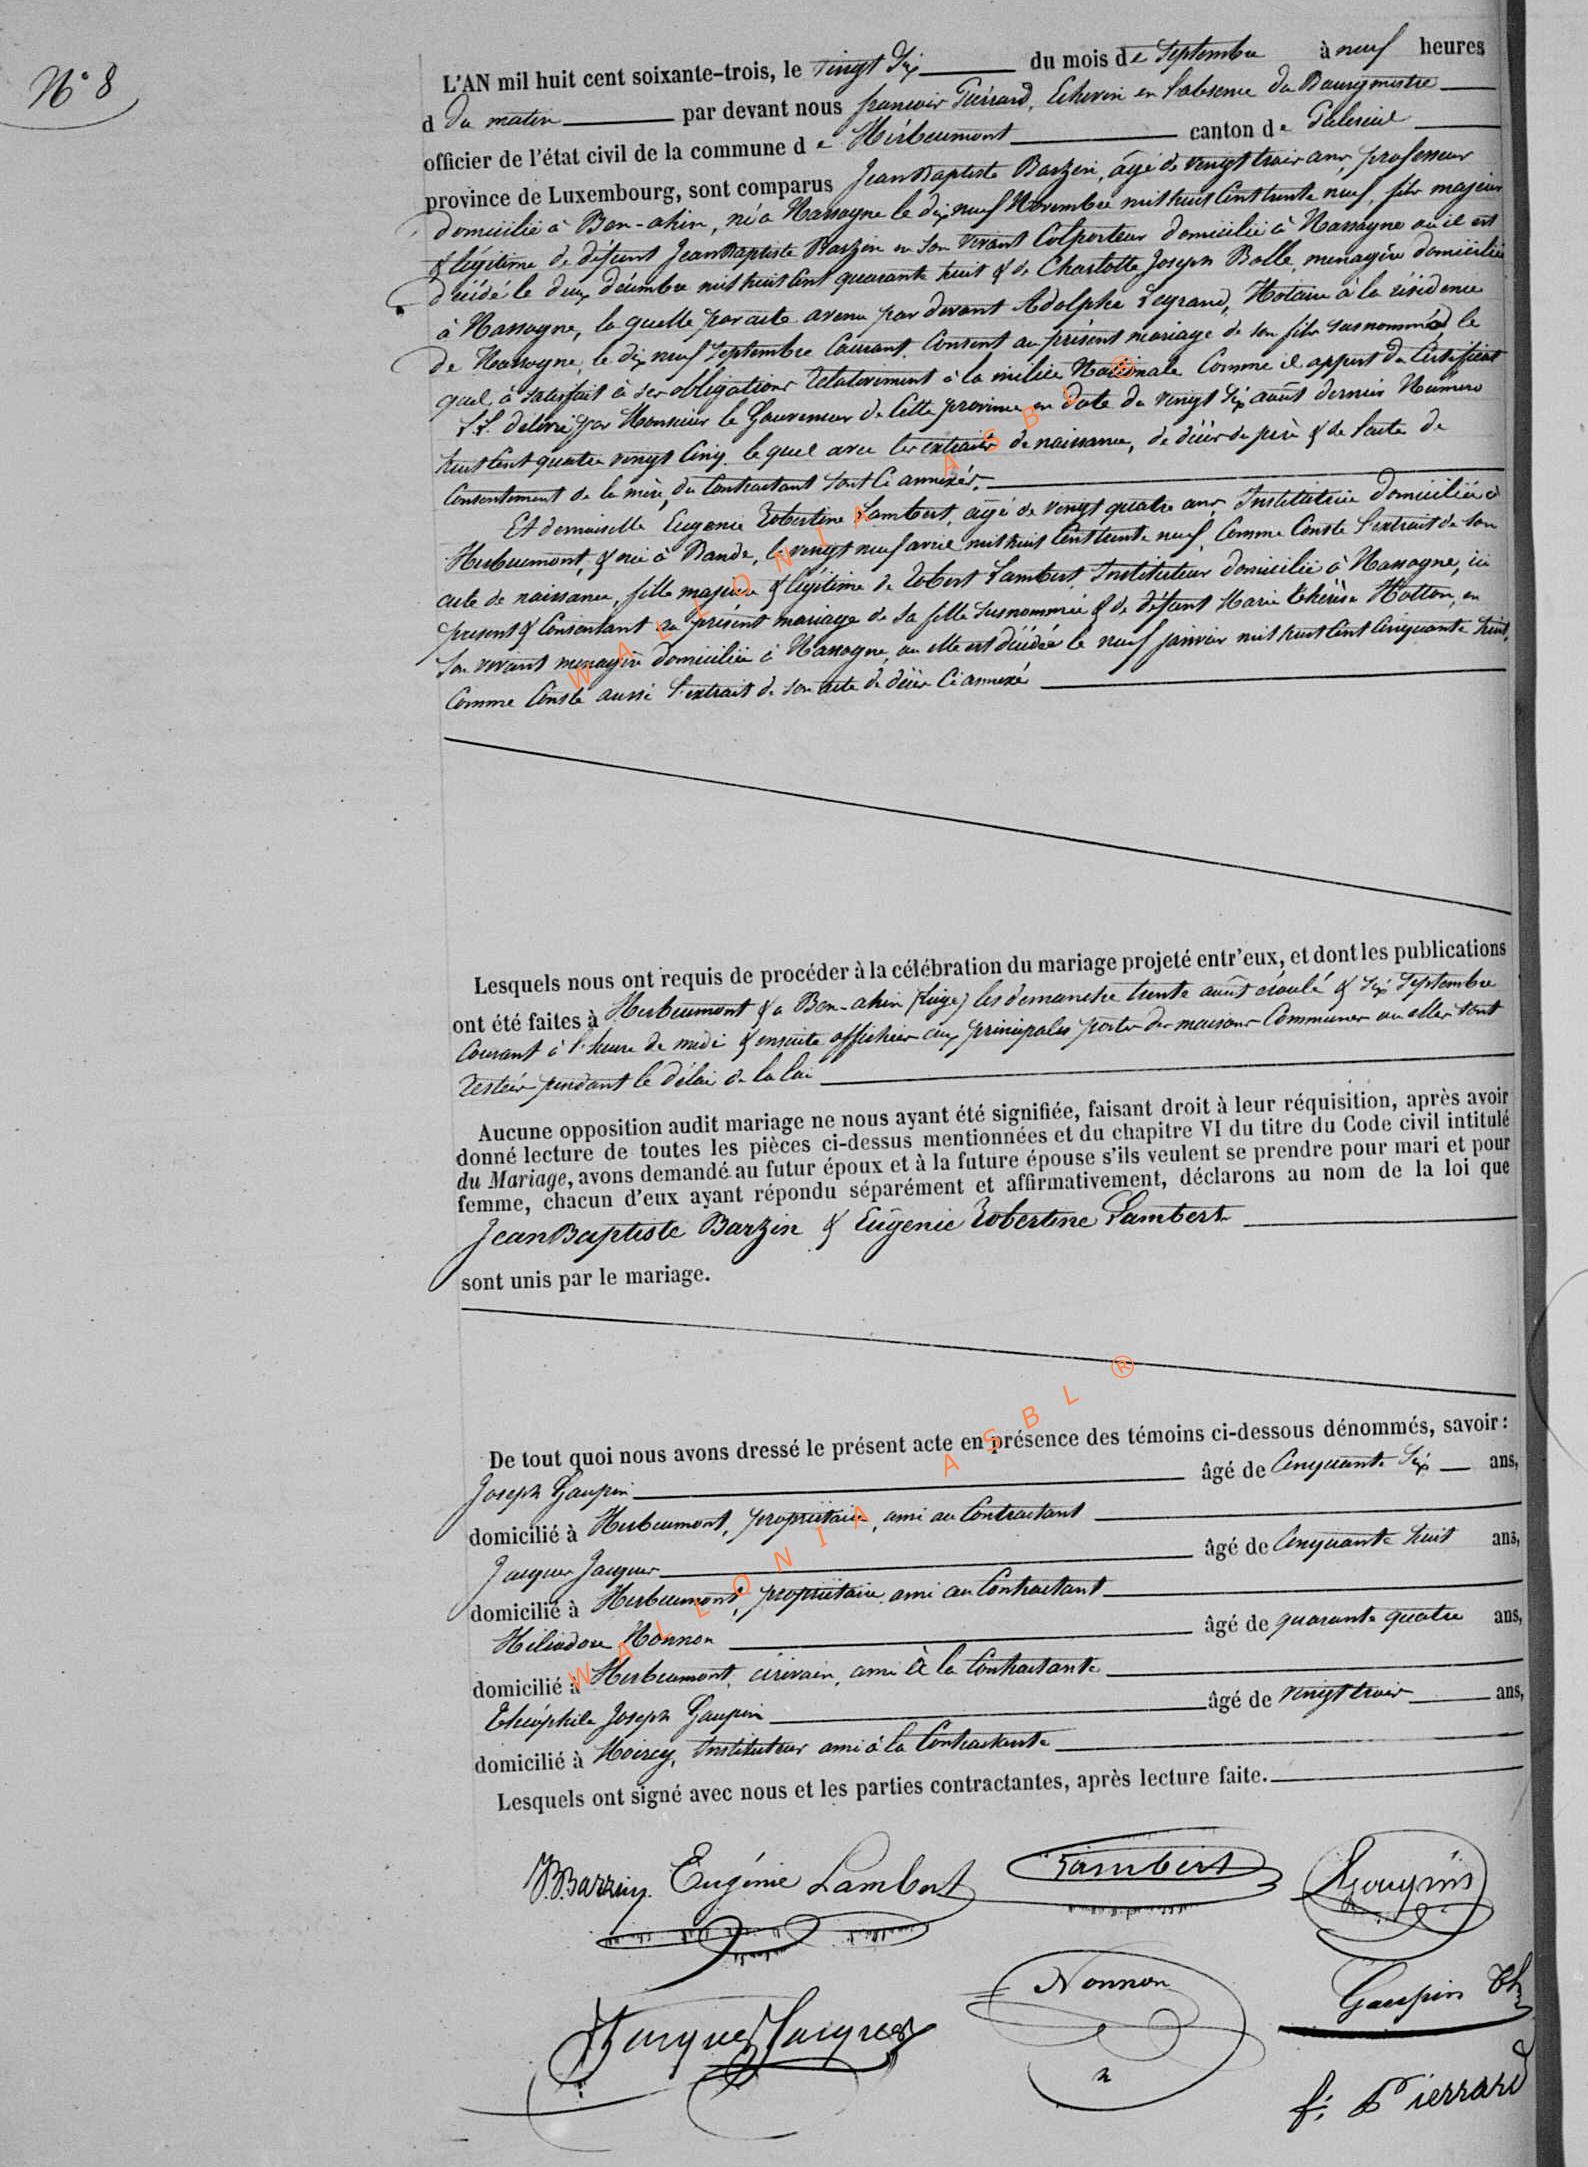 N° 8
L'AN mil huit cent soixante-trois, le vingt Six du mois de Septembre à neuf heures
d du matin par devant nous françois Pierrard, Echevin en l'absence du Bourgmestre
officier de l'état civil de la commune d e Herbeumont canton de Paliseul
province de Luxembourg, sont comparus Jean Baptiste Barzin, âgé de vingt trois ans, professeur
domicilié à Ben-ahin, né à Nassogne le dix neuf Novembre mil huit Cent trente neuf, fils majeur
& légitime de défunt Jean Baptiste Barzin en son vivant Colporteur domicilié à Nassogne où il est
décédé le deux décembre mil huit Cent quarante huit & de Charlotte Joseph Bolle, menagère domiciliée
à Nassogne, la quelle par acte avenu par devant Adolphe Legrand, Notaire à la résidence
de Nassogne, le dix neuf Septembre Courant, Consent au présent mariage de son fils susnommé, le
quel à satisfait à ses obligations relativement à la milice Nationale Comme il appert du Certificat
L.L. delivré par Monsieur le Gouverneur de Cette province en date du vingt Six août dernier Numero
huit Cent quatre vingt Cinq, le quel avec les extraits de naissance, de décès du père & de l'acte de
Consentement de la mère du Contractant sont Ci annexés.
Et demoiselle Eugenie Robertine Lambert, agée de vingt quatre ans Institutrice domiciliée à
Herbeumont, & née à Bande, le vingt neuf avril mil huit Cent trente neuf, Comme Conste l'extrait de son
acte de naissance, fille majeure & légitime de Robert Lambert, Instituteur domicilié à Nassogne, ici
present & Consentant au présent mariage de sa fille susnommée & de défunt Marie thérèse Hotton, en
son vivant menagère domiciliée à Nassogne, ou elle est décédée le neuf janvier mil huit Cent Cinquante huit,
Comme Conste aussi l'extrait de son acte de décès Ci annexé
Lesquels nous ont requis de procéder à la célébration du mariage projeté entr'eux, et dont les publications
ont été faites à Herbeumont & a Ben-ahin (Liège) les demanche trente août écoulé & Six Septembre
Courant à l'heure de midi & ensuite affichées aux principales portes des maisons Communes ou elles sont
restées pendant le délai de la loi
Aucune opposition audit mariage ne nous ayant été signifiée, faisant droit à leur réquisition, après avoir
donné lecture de toutes les pièces ci-dessus mentionnées et du chapitre VI du titre du Code civil intitulé
du Mariage, avons demandé au futur époux et à la future épouse s'ils veulent se prendre pour mari et pour
femme, chacun d'eux ayant répondu séparément et affirmativement, déclarons au nom de la loi que
Jean Baptiste Barzin & Eugenie Robertine Lambert
sont unis par le mariage.
De tout quoi nous avons dressé le présent acte en présence des témoins ci-dessous dénommés, savoir :
Joseph Gaupin âgé de Cinquante Six ans,
domicilié à Herbeumont, propriétaire, ami au Contractant
Jacques Jacques âgé de Cinquante huit ans,
domicilié à Herbeumont, propriétaire ami au Contractant
Héliodore Nonnon âgé de quarante quatre ans,
domicilié à Herbeumont, écrivain, ami à la Contractante
théophile Joseph Gaupin âgé de vingt trois ans,
domicilié à Moircy, Instituteur ami à la Contractante
Lesquels ont signé avec nous et les parties contractantes, après lecture faite.
J.B. Barzin Eugénie Lambert Lambert J Gaupin
Jacques Jacques Nonnon Gaupin Th
f: Pierrard
WALLONIA ASBL ®
WALLONIA ASBL ®